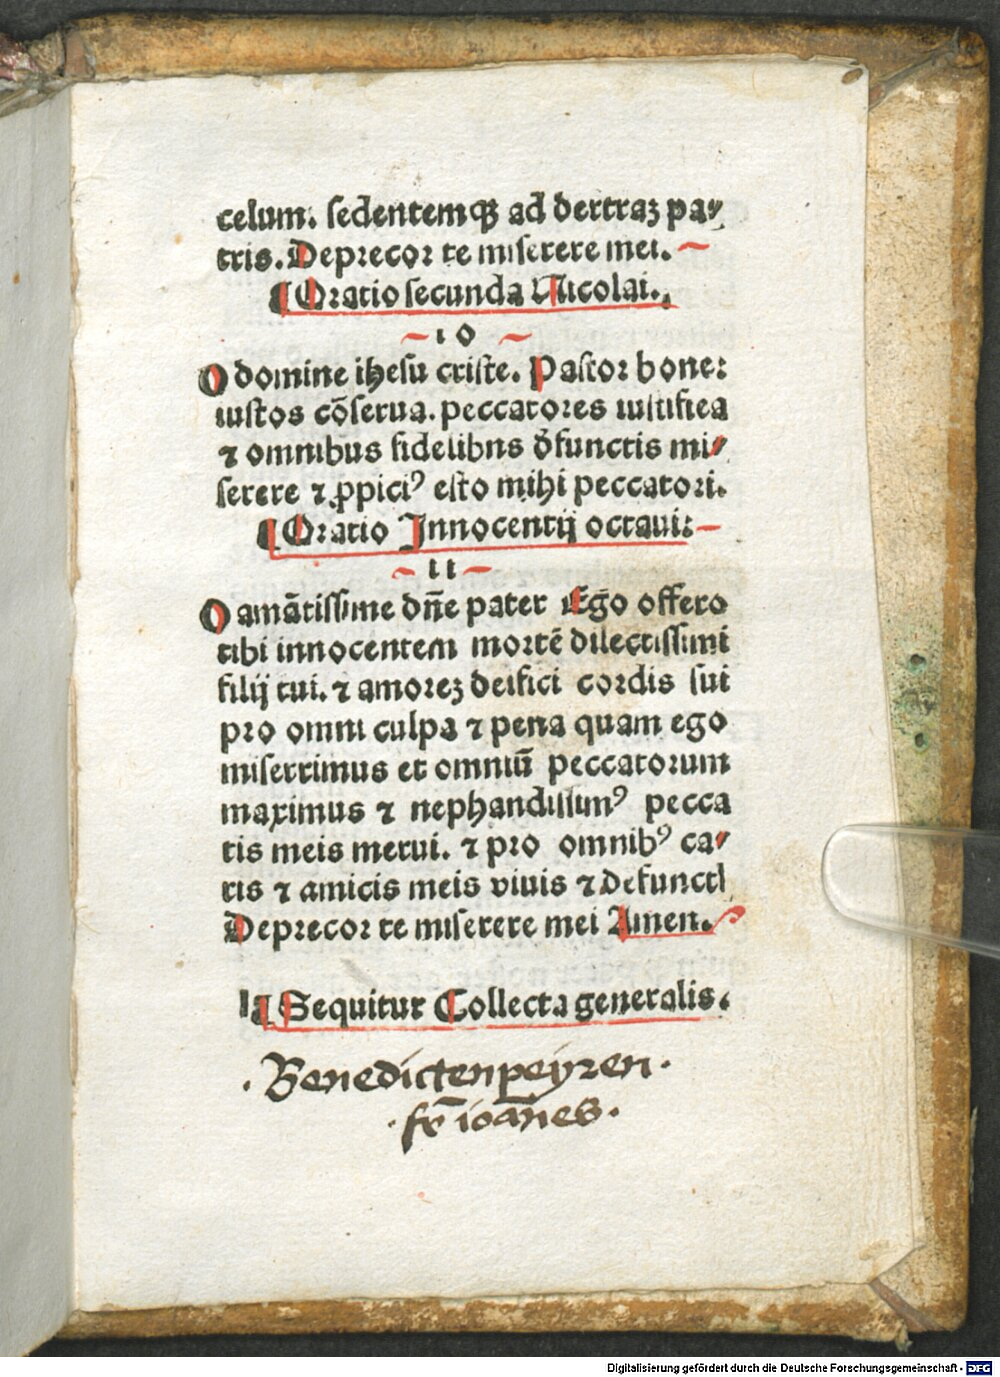 celum. sedentemqꝫ ad dertraꝫ pa⸗
tris. Deprecor te miserere mei.
¶ Oratio secunda Nicolai.
10
O domine ihesu criste. Pastor bone:
iustos cōserua. peccatores iustifica
⁊ omnibus fidelibns d̄functis mi⸗
serere ⁊ ꝓpiciꝰ esto mihi peccatori.
¶ Oratio Innocentij octaui:
11
O amātissime dn̄e pater Ego offero
tibi innocentem mortē dilectissimi
filij tui. ⁊ amoreꝫ deifici cordis sui
pro omni culpa ⁊ pena quam ego
miserrimus et omniū peccatorum
maximus ⁊ nephandissimꝰ pecca
tis meis merui. ⁊ pro omnibꝰ ca⸗
ris ⁊ amicis meis viuis ⁊ Defuncti
Deprecor te miserere mei Amen.
¶ Sequitur Collecta generalis.
· Benedictenpeyren ·
· fr̄ ioān̄es ·
Digitalisierung gefördert durch die Deutsche Forschungsgemeinschaft - DFG